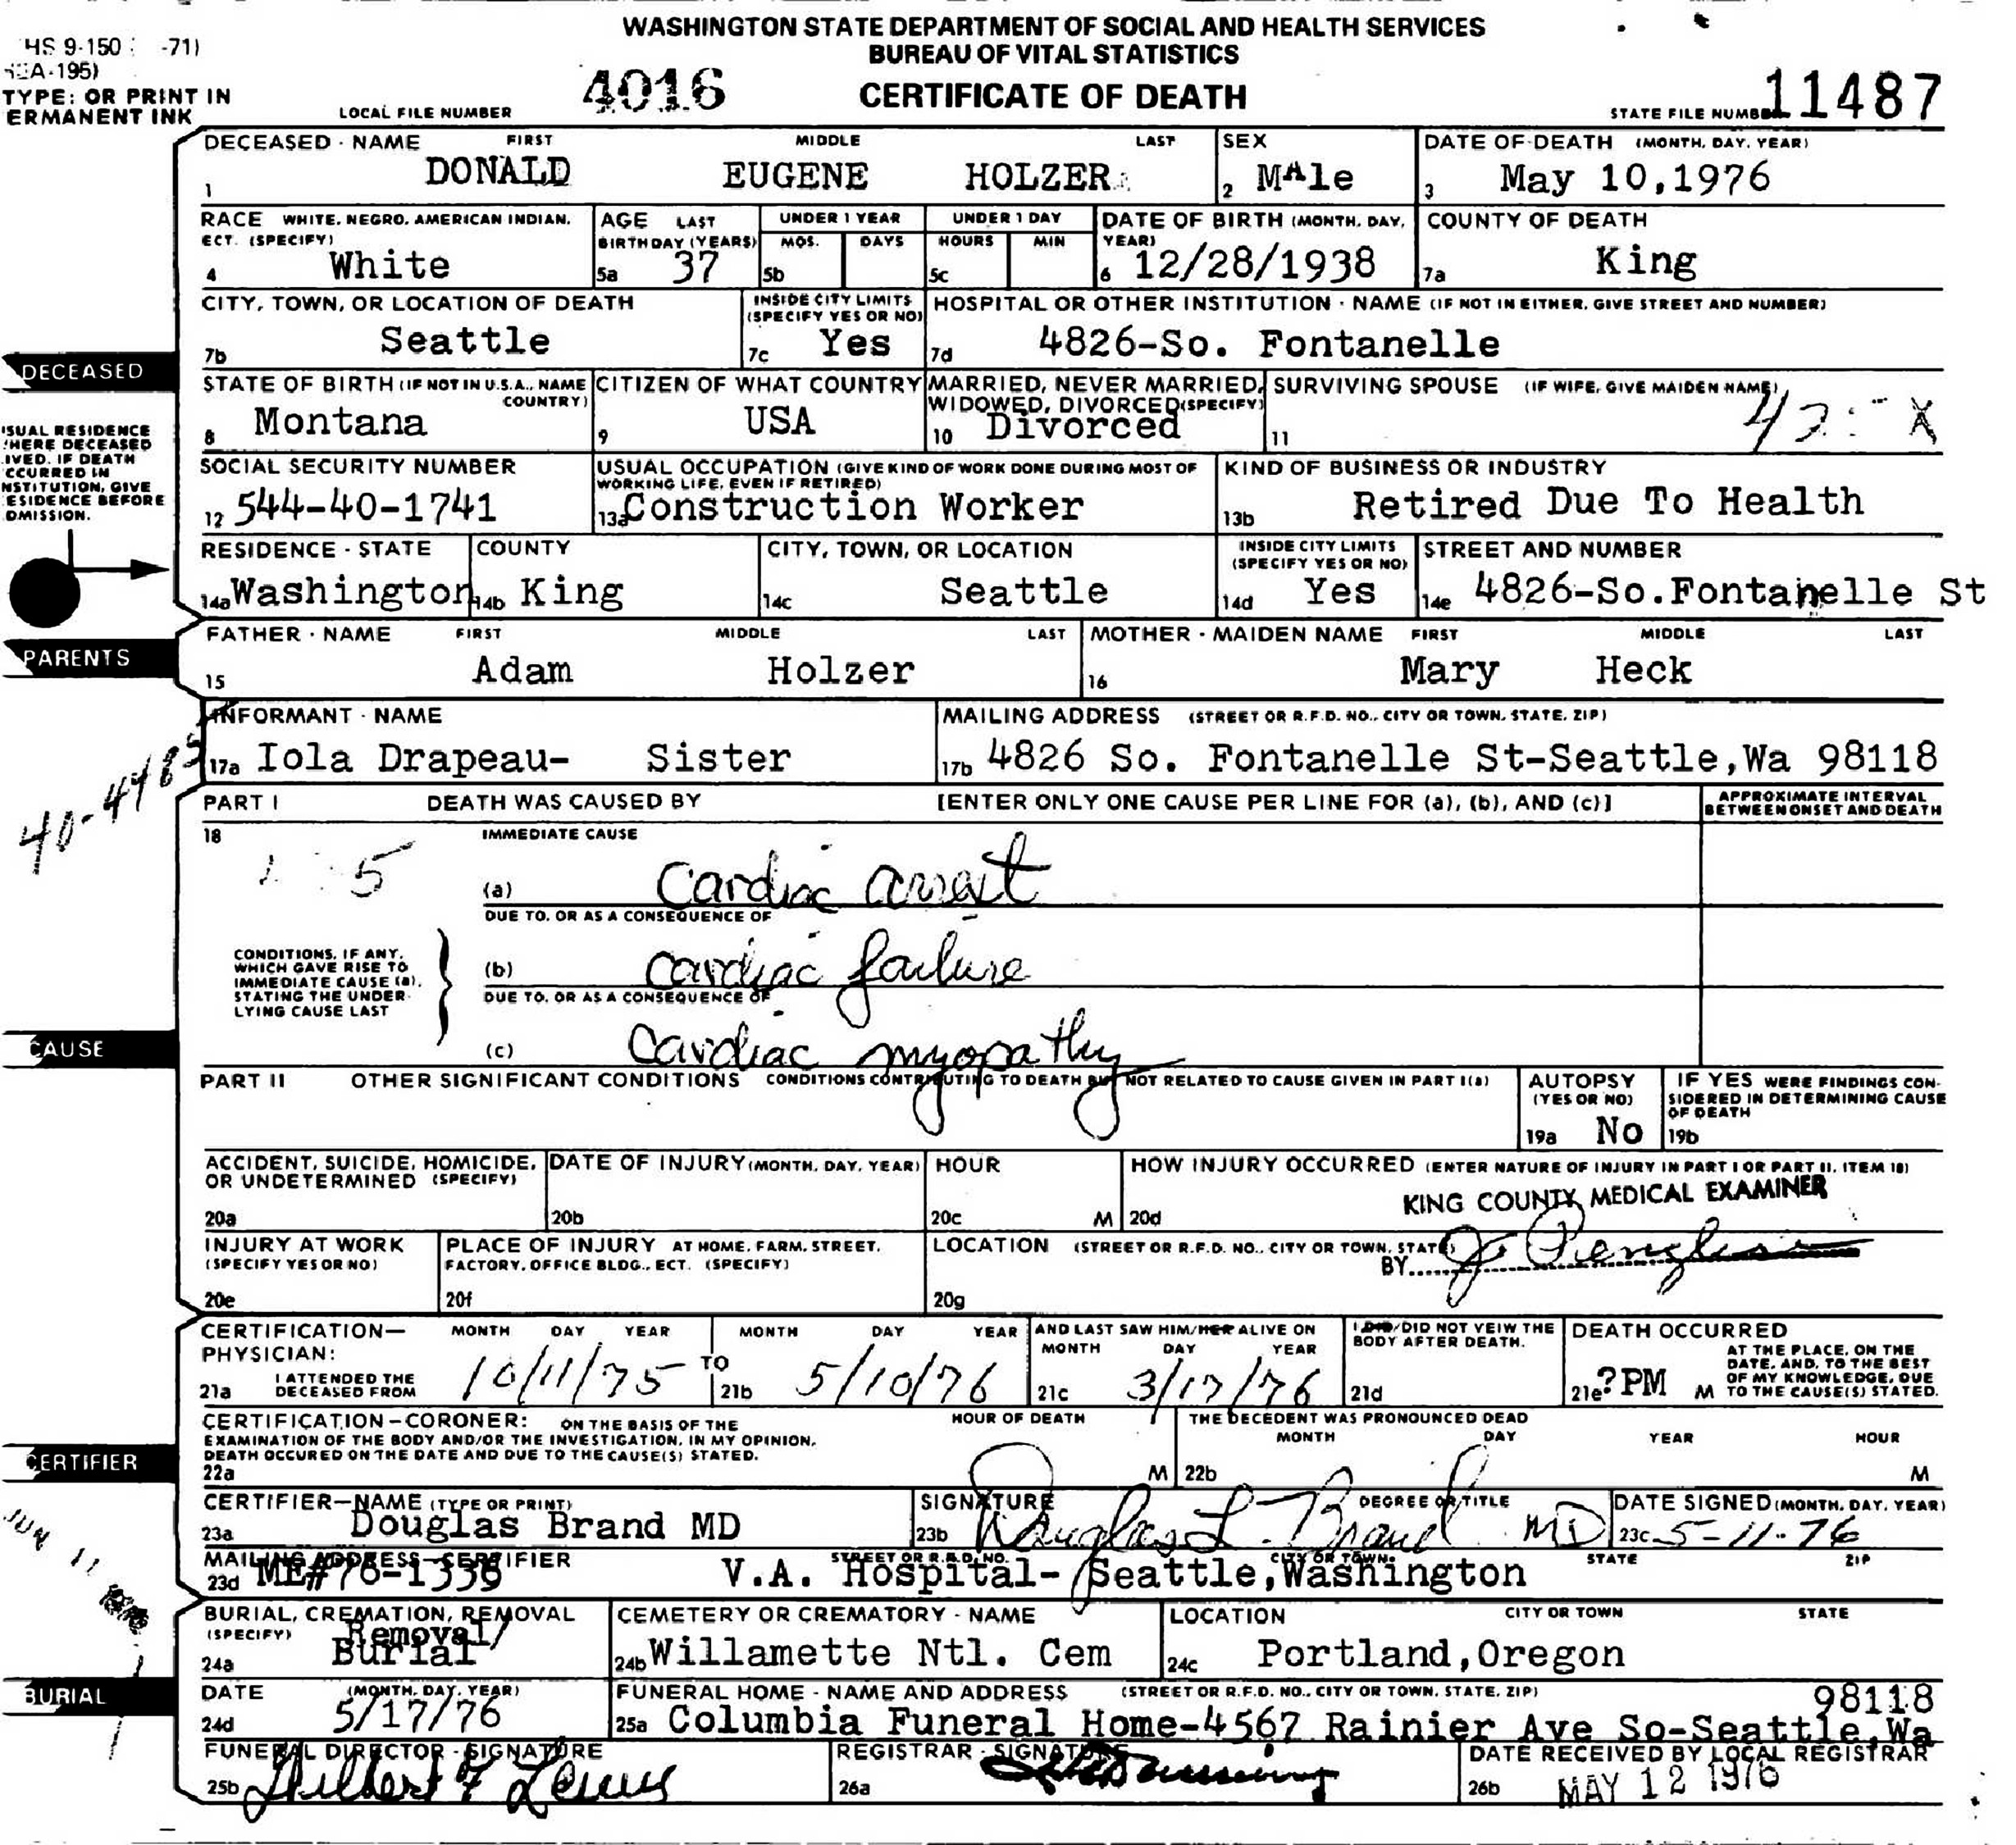 WASHINGTON STATE DEPARTMENT OF SOCIAL AND HEALTH SERVICES
BUREAU OF VITAL STATISTICS
HS 9-150 -71)
A-195)
TYPE: OR PRINT IN
ERMANENT INK
LOCAL FILE NUMBER 4016 CERTIFICATE OF DEATH STATE FILE NUMBE 11487
DECEASED - NAME FIRST MIDDLE LAST SEX DATE OF DEATH (MONTH, DAY, YEAR)
1 DONALD EUGENE HOLZER 2 MAle 3 May 10,1976
RACE WHITE, NEGRO, AMERICAN INDIAN, AGE LAST UNDER 1 YEAR UNDER 1 DAY DATE OF BIRTH (MONTH, DAY, COUNTY OF DEATH
ECT. (SPECIFY) BIRTHDAY (YEARS) MOS. DAYS HOURS MIN YEAR)
4 White 5a 37 5b 5c 6 12/28/1938 7a King
CITY, TOWN, OR LOCATION OF DEATH INSIDE CITY LIMITS HOSPITAL OR OTHER INSTITUTION - NAME (IF NOT IN EITHER, GIVE STREET AND NUMBER)
(SPECIFY YES OR NO)
7b Seattle 7c Yes 7d 4826-So. Fontanelle
DECEASED
STATE OF BIRTH (IF NOT IN U.S.A., NAME CITIZEN OF WHAT COUNTRY MARRIED, NEVER MARRIED, SURVIVING SPOUSE (IF WIFE, GIVE MAIDEN NAME)
COUNTRY) WIDOWED, DIVORCED (SPECIFY)
8 Montana 9 USA 10 Divorced 11
SUAL RESIDENCE
HERE DECEASED
IVED. IF DEATH
CCURRED IN
NSTITUTION, GIVE
ESIDENCE BEFORE
DMISSION.
SOCIAL SECURITY NUMBER USUAL OCCUPATION (GIVE KIND OF WORK DONE DURING MOST OF KIND OF BUSINESS OR INDUSTRY
WORKING LIFE, EVEN IF RETIRED)
12 544-40-1741 13a Construction Worker 13b Retired Due To Health
RESIDENCE - STATE COUNTY CITY, TOWN, OR LOCATION INSIDE CITY LIMITS STREET AND NUMBER
(SPECIFY YES OR NO)
14a Washington 14b King 14c Seattle 14d Yes 14e 4826-So.Fontanelle St
PARENTS
FATHER - NAME FIRST MIDDLE LAST MOTHER - MAIDEN NAME FIRST MIDDLE LAST
15 Adam Holzer 16 Mary Heck
INFORMANT - NAME MAILING ADDRESS (STREET OR R.F.D. NO., CITY OR TOWN, STATE, ZIP)
17a Iola Drapeau- Sister 17b 4826 So. Fontanelle St-Seattle,Wa 98118
PART I DEATH WAS CAUSED BY [ENTER ONLY ONE CAUSE PER LINE FOR (a), (b), AND (c)] APPROXIMATE INTERVAL
BETWEEN ONSET AND DEATH
18 IMMEDIATE CAUSE
(a) Cardiac arrest
DUE TO, OR AS A CONSEQUENCE OF
CONDITIONS, IF ANY,
WHICH GAVE RISE TO
IMMEDIATE CAUSE (a),
STATING THE UNDER-
LYING CAUSE LAST
(b) Cardiac failure
DUE TO, OR AS A CONSEQUENCE OF
CAUSE
(c) Cardiac myopathy
PART II OTHER SIGNIFICANT CONDITIONS CONDITIONS CONTRIBUTING TO DEATH BUT NOT RELATED TO CAUSE GIVEN IN PART I(a) AUTOPSY IF YES WERE FINDINGS CON-
(YES OR NO) SIDERED IN DETERMINING CAUSE
OF DEATH
19a No 19b
ACCIDENT, SUICIDE, HOMICIDE, DATE OF INJURY (MONTH, DAY, YEAR) HOUR HOW INJURY OCCURRED (ENTER NATURE OF INJURY IN PART I OR PART II, ITEM 18)
OR UNDETERMINED (SPECIFY)
KING COUNTY MEDICAL EXAMINER
20a 20b 20c M 20d
INJURY AT WORK PLACE OF INJURY AT HOME, FARM, STREET, LOCATION (STREET OR R.F.D. NO., CITY OR TOWN, STATE)
(SPECIFY YES OR NO) FACTORY, OFFICE BLDG., ECT. (SPECIFY) BY
20e 20f 20g
CERTIFICATION— MONTH DAY YEAR MONTH DAY YEAR AND LAST SAW HIM/HER ALIVE ON I DID/DID NOT VEIW THE DEATH OCCURRED
PHYSICIAN: MONTH DAY YEAR BODY AFTER DEATH. AT THE PLACE, ON THE
DATE, AND, TO THE BEST
OF MY KNOWLEDGE, DUE
TO THE CAUSE(S) STATED.
21a I ATTENDED THE DECEASED FROM 10/11/75 TO 21b 5/10/76 21c 3/17/76 21d 21e ?PM M
CERTIFICATION—CORONER: ON THE BASIS OF THE HOUR OF DEATH THE DECEDENT WAS PRONOUNCED DEAD
EXAMINATION OF THE BODY AND/OR THE INVESTIGATION, IN MY OPINION, MONTH DAY YEAR HOUR
DEATH OCCURED ON THE DATE AND DUE TO THE CAUSE(S) STATED.
CERTIFIER
22a M 22b M
CERTIFIER—NAME (TYPE OR PRINT) SIGNATURE DEGREE OR TITLE DATE SIGNED (MONTH, DAY, YEAR)
23a Douglas Brand MD 23b Douglas L. Brand MD 23c 5-11-76
MAILING ADDRESS—CERTIFIER STREET OR R.F.D. NO. CITY OR TOWN STATE ZIP
23d ME#76-1336 V.A. Hospital- Seattle,Washington
JUN 11
BURIAL, CREMATION, REMOVAL CEMETERY OR CREMATORY - NAME LOCATION CITY OR TOWN STATE
(SPECIFY) Removal/
24a Burial 24b Willamette Ntl. Cem 24c Portland,Oregon
BURIAL
DATE (MONTH, DAY, YEAR) FUNERAL HOME - NAME AND ADDRESS (STREET OR R.F.D. NO., CITY OR TOWN, STATE, ZIP) 98118
24d 5/17/76 25a Columbia Funeral Home-4567 Rainier Ave So-Seattle,Wa
FUNERAL DIRECTOR - SIGNATURE REGISTRAR - SIGNATURE DATE RECEIVED BY LOCAL REGISTRAR
25b 26a 26b MAY 12 1976